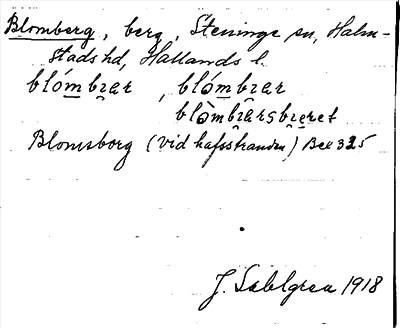 Blomberg, berg, Steninge sn, Halm-
stads hd, Hallands l.
blómbær, blómbær
blòmbærsbæret
Blomsborg (vid hafsstranden) Bex 325
J. Sahlgren 1918